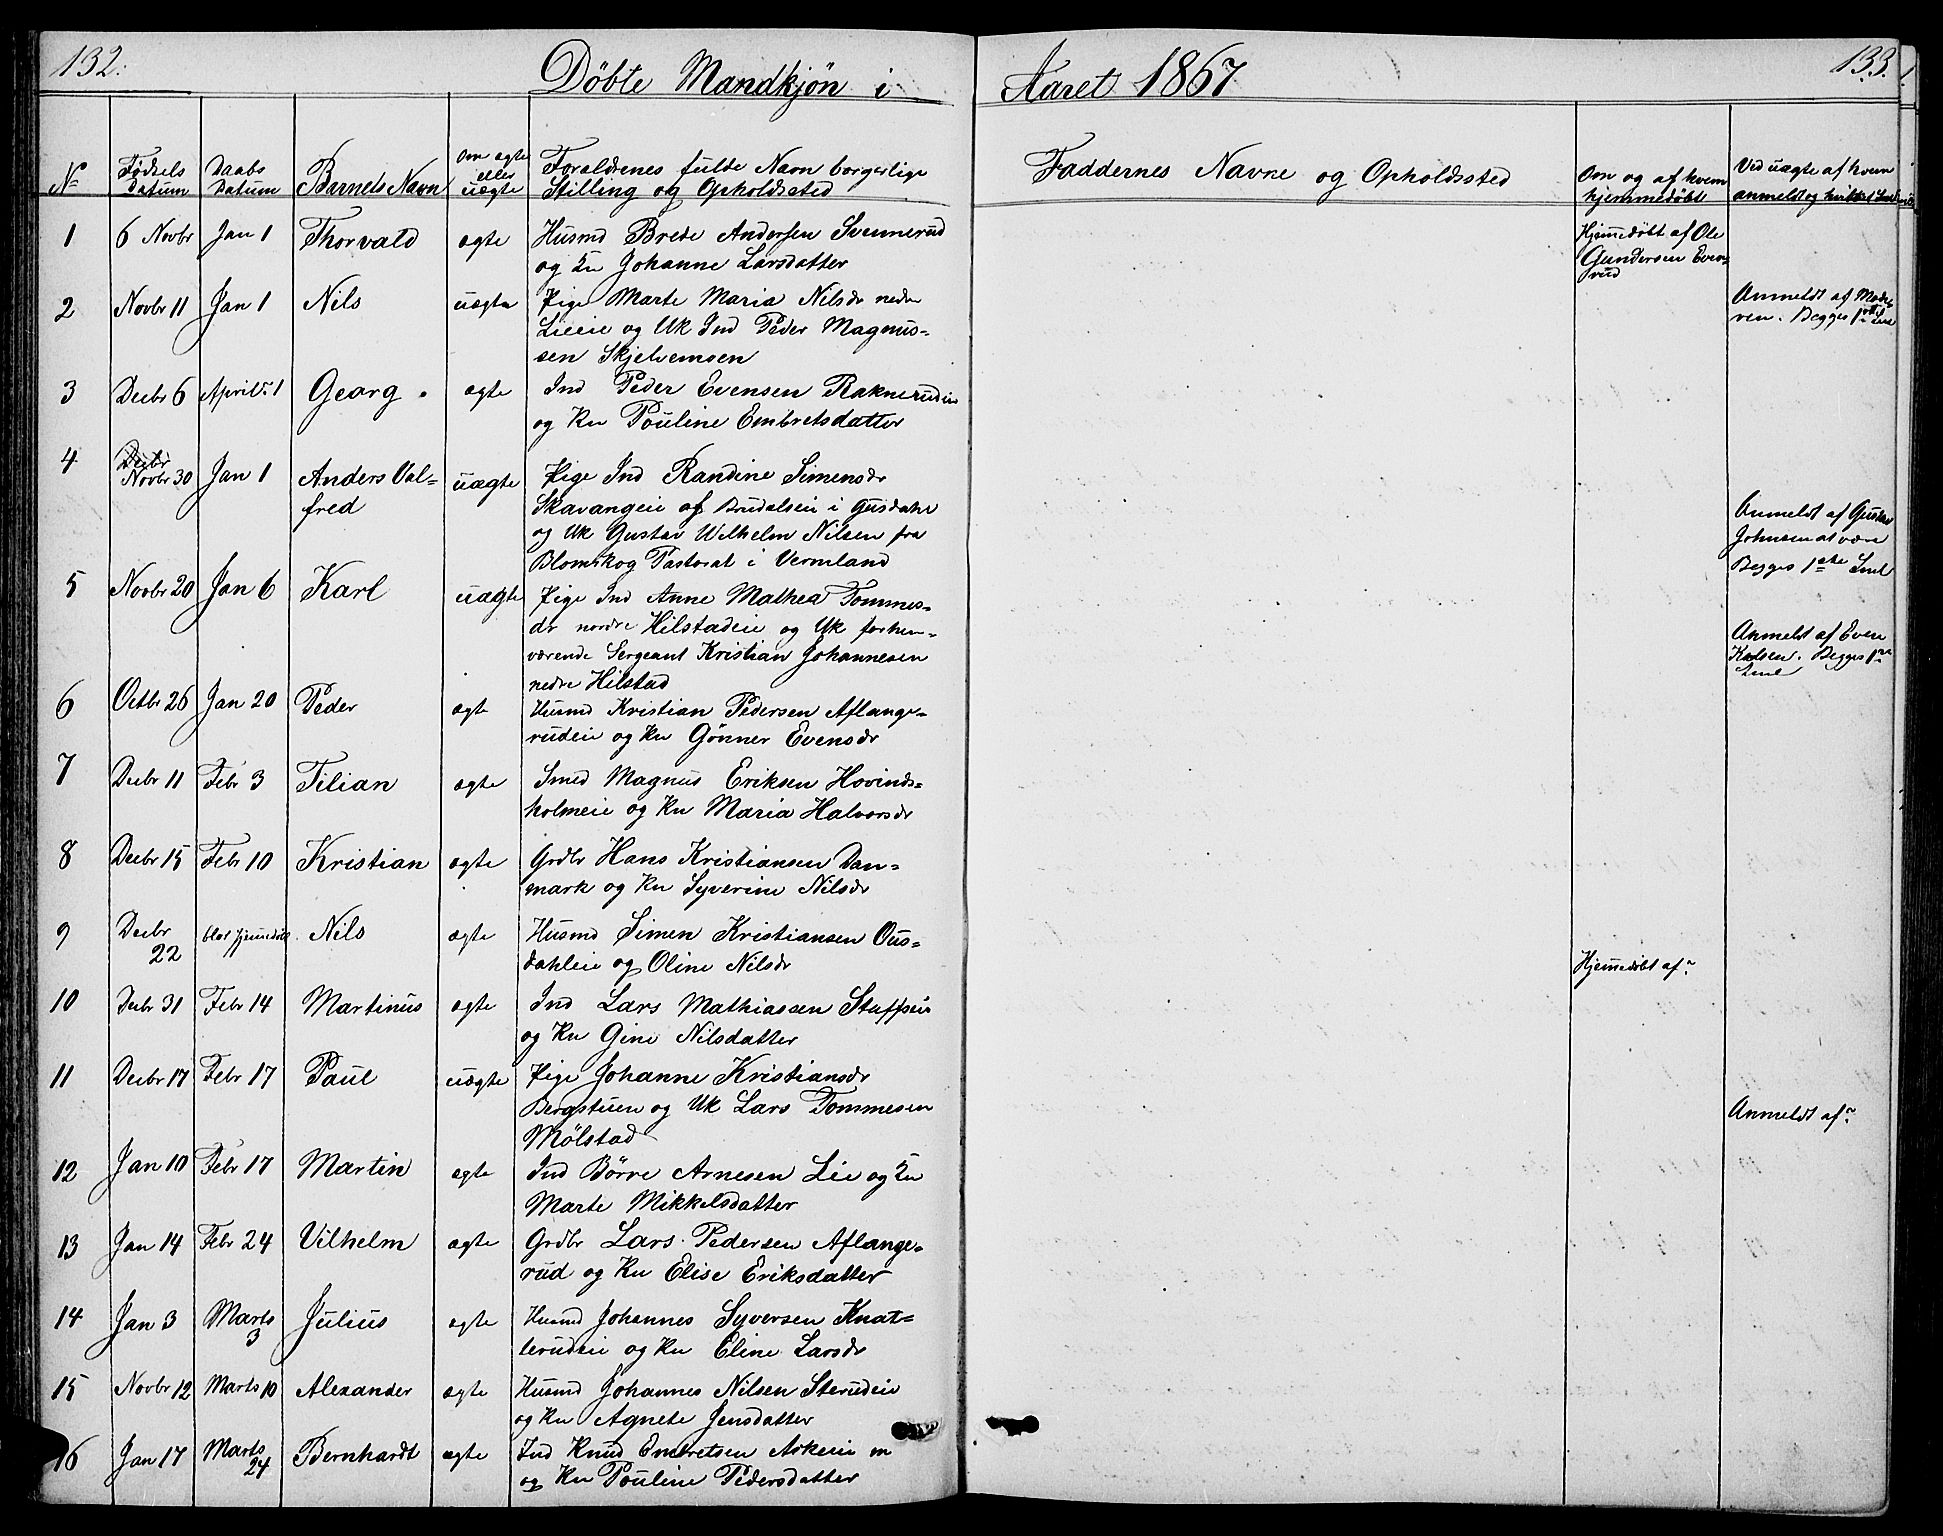 132.
Döbte Mandkjön i
No
Fødsels Datum
Daabs Datum
Barnets Navn
Om ægte eller uægte
Forældrenes fulde Navn borgerlige
Stilling og Opholdssted
1 6 Novbr Jan 1 Thorvald ægte Husmd Brede Andersen Svennerud
og Ku Johanne Larsdatter
2 Novbr 11 Jan 1 Nils uægte Pige Marte Maria Nilsdr nedre
Lieeie og Uk Ind Peder Magnus-
sen Skjelvemoen
3 Decbr 6 April 1 Georg ægte Ind Peder Evensen Raknerudeie
og Ku Pouline Embretsdatter
4 Decbr
Novbr 30 Jan 1 Anders Val- uægte Pige Ind Randine Simensdr
fred Skavangeie af Brudalseie i
og Uk Gustav Wilhelm Nilsen fra
Blomskog Pastorat i Vermland
5 Novbr 20 Jan 6 Karl uægte Pige Ind Anne Mathea Tommes-
dr nordre Hilstadeie og Uk forhen-
værende Sergeant Kristian Johannesen
nedre Hilstad
6 Octbr 26 Jan 20 Peder ægte Husmd Kristian Pedersen Aflange-
rudeie og Ku Gönner Evensdr
7 Decbr 11 Febr 3 Tilian ægte Smed Magnus Eriksen Hovinds-
holmeie og Ku Maria Halvorsdr
8 Decbr 15 Febr 10 Kristian ægte Grdbr Hans Kristiansen Dan-
mark og Ku Syverine Nilsdr
9 Decbr 22 blot hjemmedöbt Nils ægte Husmd Simen Kristiansen Ous-
dahleie og Oline Nilsdr
10 Decbr 31 Febr 14 Martinus ægte Ind Lars Mathiassen
og Ku Gine Nilsdatter
11 Decbr 17 Febr 17 Paul uægte Pige Johanne Kristiansdr
Bergstuen og Uk Lars Tommesen
Mölstad
12 Jan 10 Febr 17 Martin ægte Ind Börre Arnesen Lie og Ku
Marte Mikkelsdatter
13 Jan 14 Febr 24 Vilhelm ægte Grdbr Lars Pedersen Aflange-
rud og Ku Elise Eriksdatter
14 Jan 3 Marts 3 Julius ægte Husmd Johannes Syversen Knat-
terudeie og Ku Eline Larsdr
15 Novbr 12 Marts 10 Alexander ægte Husmd Johannes Nilsen Sterudeie
og Ku Agnete Jensdatter
16 Jan 17 Marts 24 Bernhardt ægte Ind Knud Embretsen Askeeie
og Ku Pouline Pedersdatter
133.
Aaret 1867
Faddernes Navne og Opholdssted
Om og af hvem
hjemmedöbt
Ved uægte af hvem
anmeldt og
Hjemmedöbt af Ole
Gundersen Even-
rud
Anmeldt af Mode-
ren. Begges 1ste
Anmeldt af
at være
Begges 1ste
Anmeldt af Even
Begges 1ste
Hjemmedöbt af?
Anmeldt af?